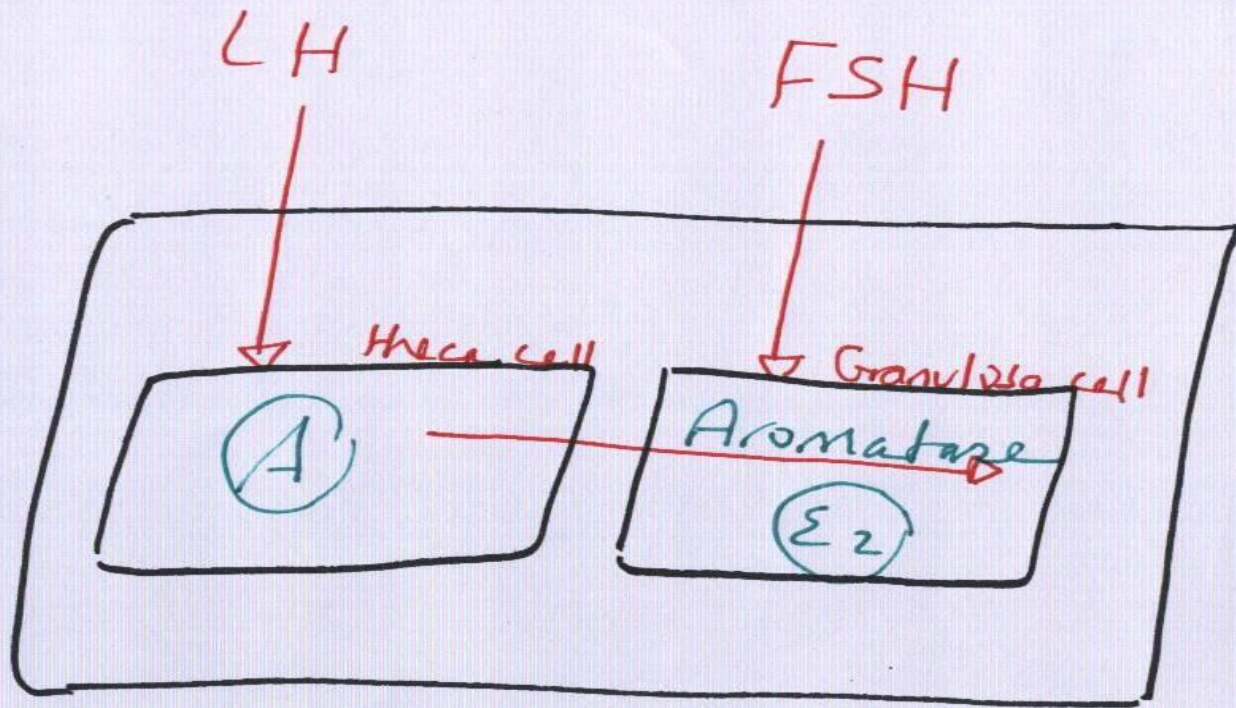 LH
FSH
theca cell
Granulosa cell
A
Aromatase
E2